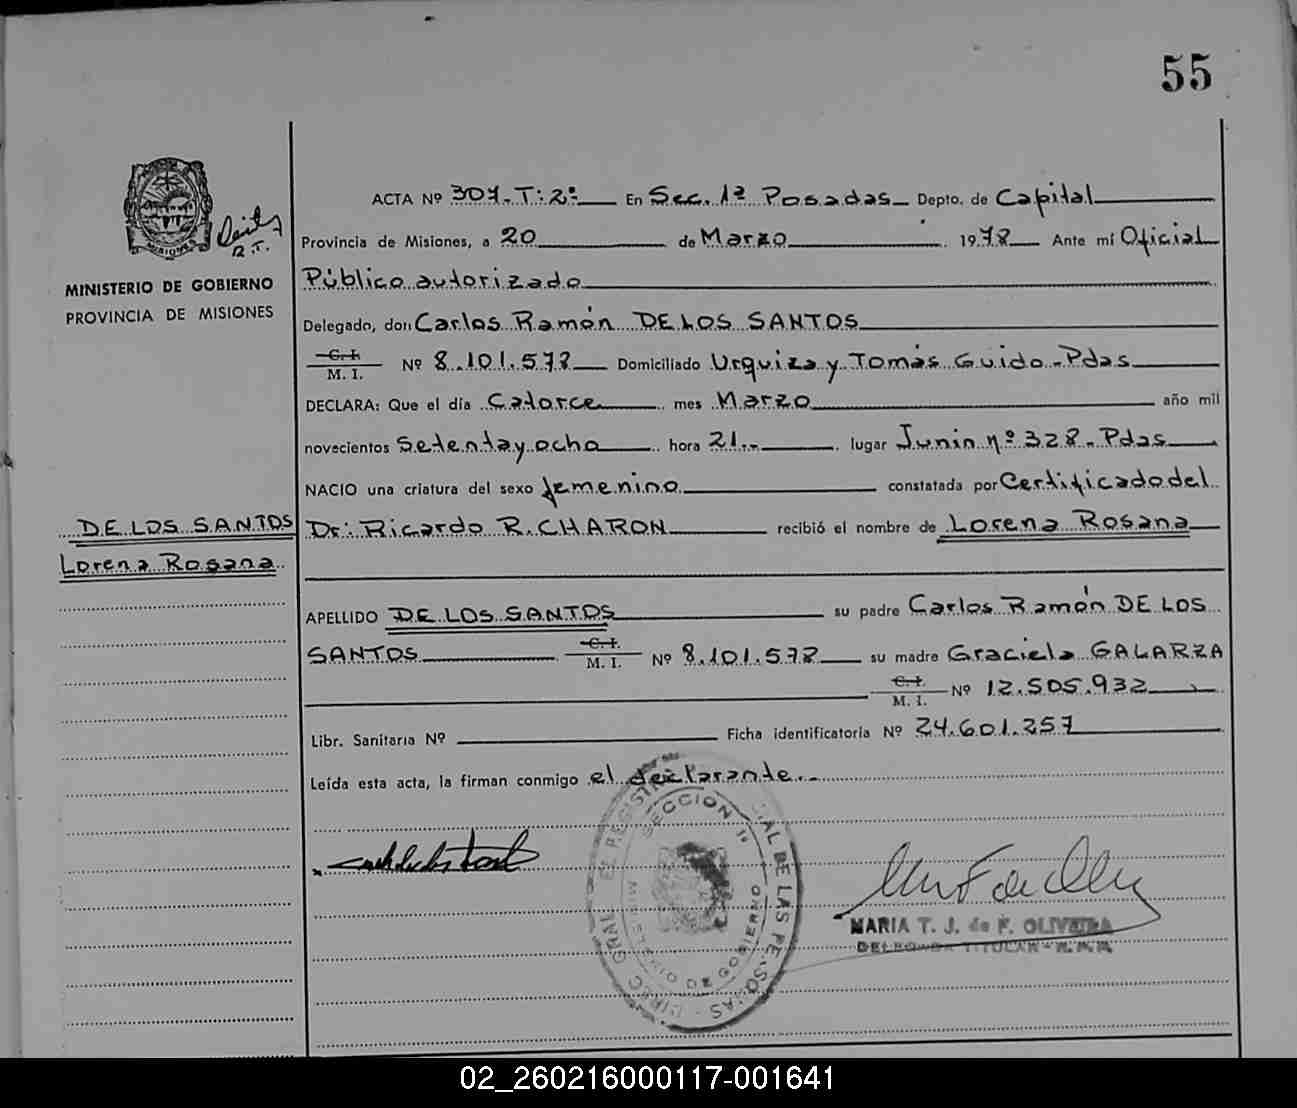 55
ACTA Nº 307. T: 2º En Sec. 1ª Posadas Depto. de Capital
Provincia de Misiones, a 20 de Marzo 1978 Ante mí Oficial
MINISTERIO DE GOBIERNO
PROVINCIA DE MISIONES
Público autorizado
Delegado, don Carlos Ramón DE LOS SANTOS
C. I.
M. I. Nº 8.101.578 Domiciliado Urquiza y Tomás Guido - Pdas
DECLARA: Que el día Catorce mes Marzo año mil
novecientos Setenta y ocho hora 21.- lugar Junin nº 328 - Pdas
NACIO una criatura del sexo femenino constatada por Certificado del
DE LOS SANTOS
Lorena Rosana
Dr: Ricardo R. CHARON recibió el nombre de Lorena Rosana
APELLIDO DE LOS SANTOS su padre Carlos Ramón DE LOS
SANTOS C. I. M. I. Nº 8.101.578 su madre Graciela GALARZA
C. I.
M. I. Nº 12.505.932
Libr. Sanitaria Nº Ficha identificatoria Nº 24.601.257
Leída esta acta, la firman conmigo el declarante.-
SECCION 1ª
MARIA T. J. de F. OLIVEIRA
DELEGADA TITULAR - R.P.P.
02_260216000117-001641